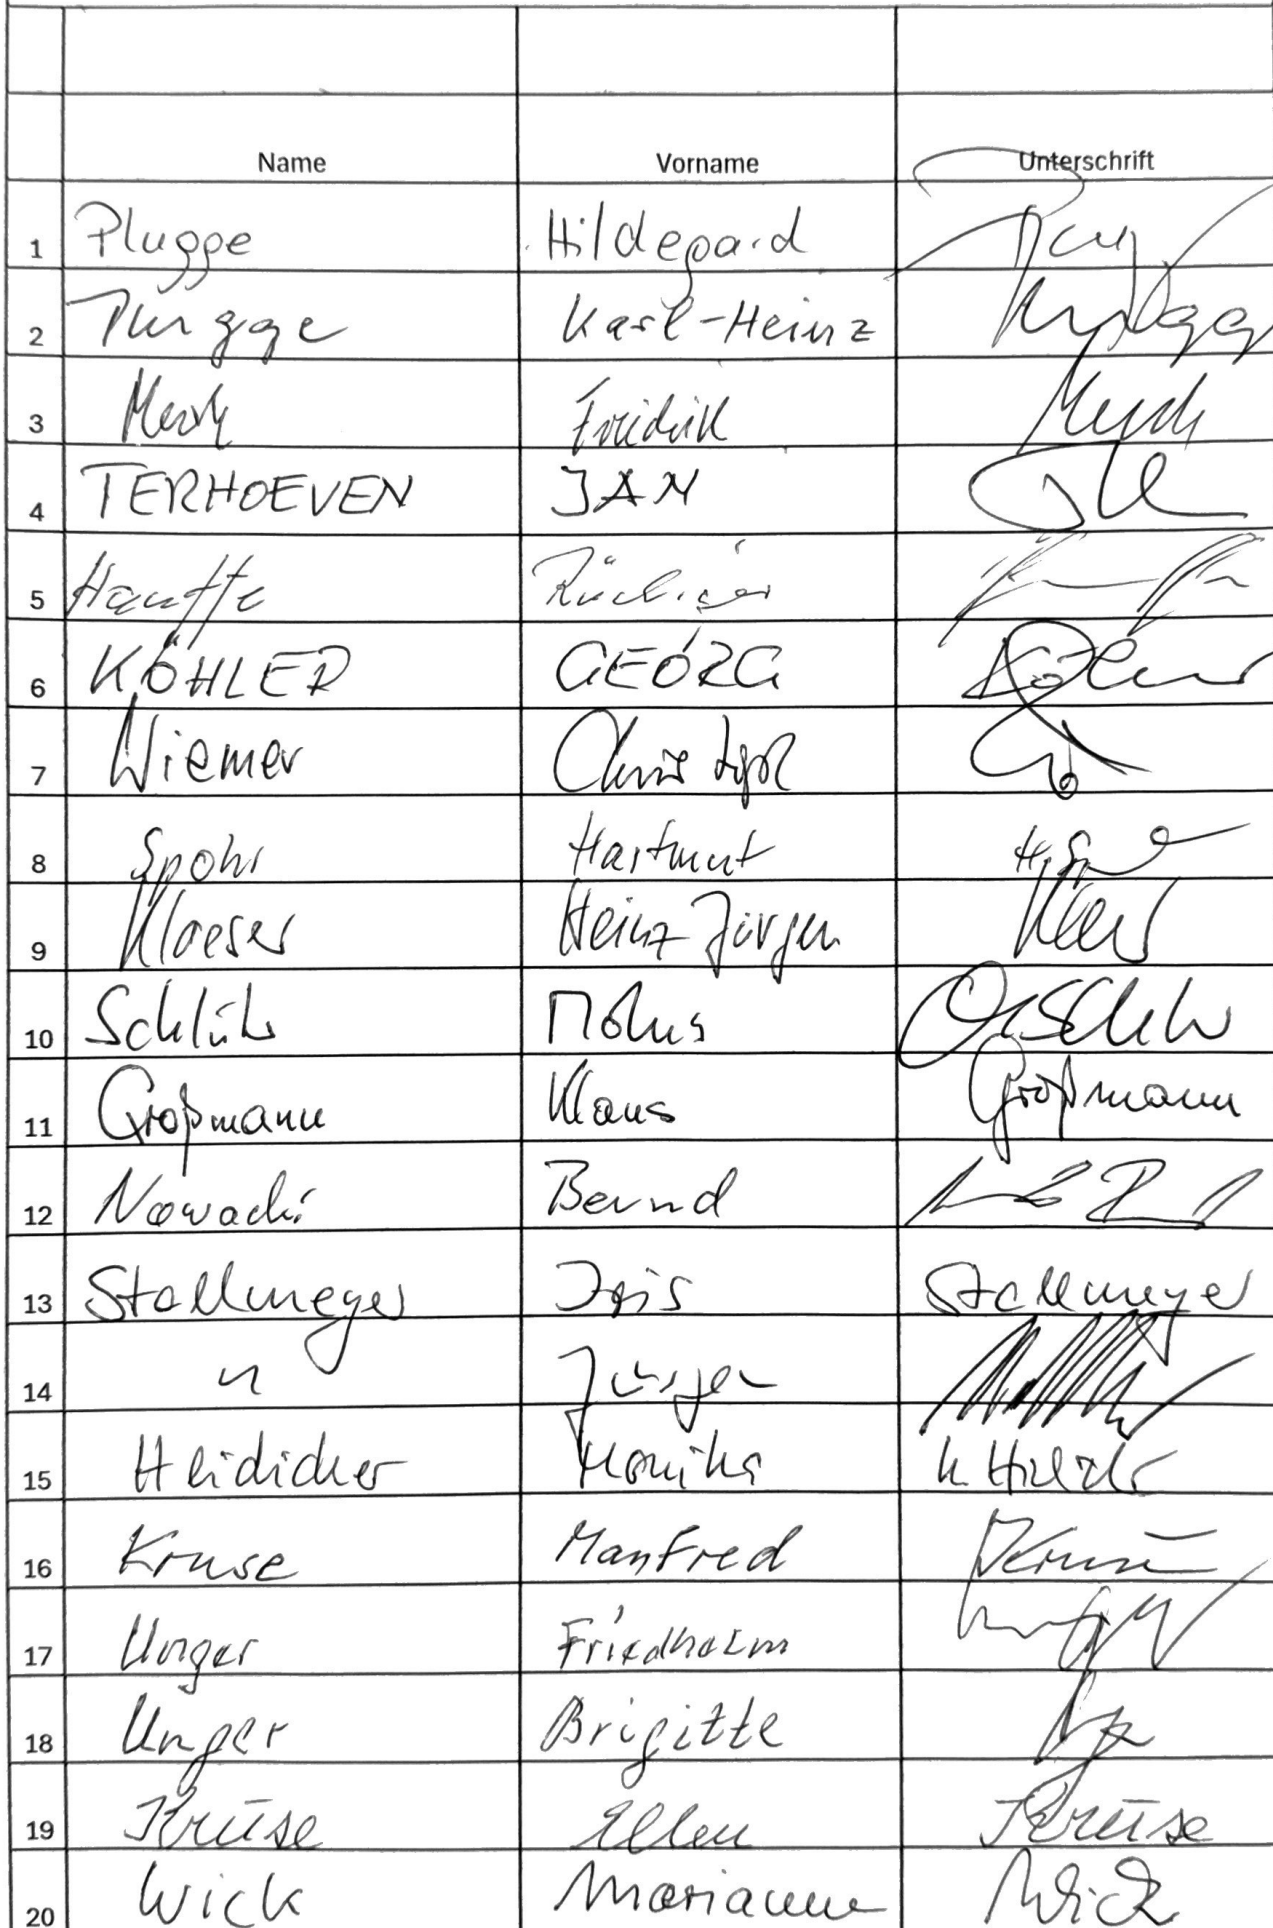 Name Vorname Unterschrift
1 Plugge Hildegard
2 Plugge Karl-Heinz
3
4 TERHOEVEN JAN
5 Hauffe Rüdiger
6 KÖHLER GEORG Köhler
7 Wiemer Christoph
8 Spohr Hartmut
9 Klaeser Heinz Jürgen
10
11 Großmann Klaus Großmann
12 Nowacki Bernd
13 Stallmeyer Iris Stallmeyer
14 " Jürgen
15 Heidicker Monika
16 Kruse Manfred Kruse
17 Unger Friedhelm
18 Unger Brigitte
19 Kruse Ellen Kruse
20 Wick Marianne Wick